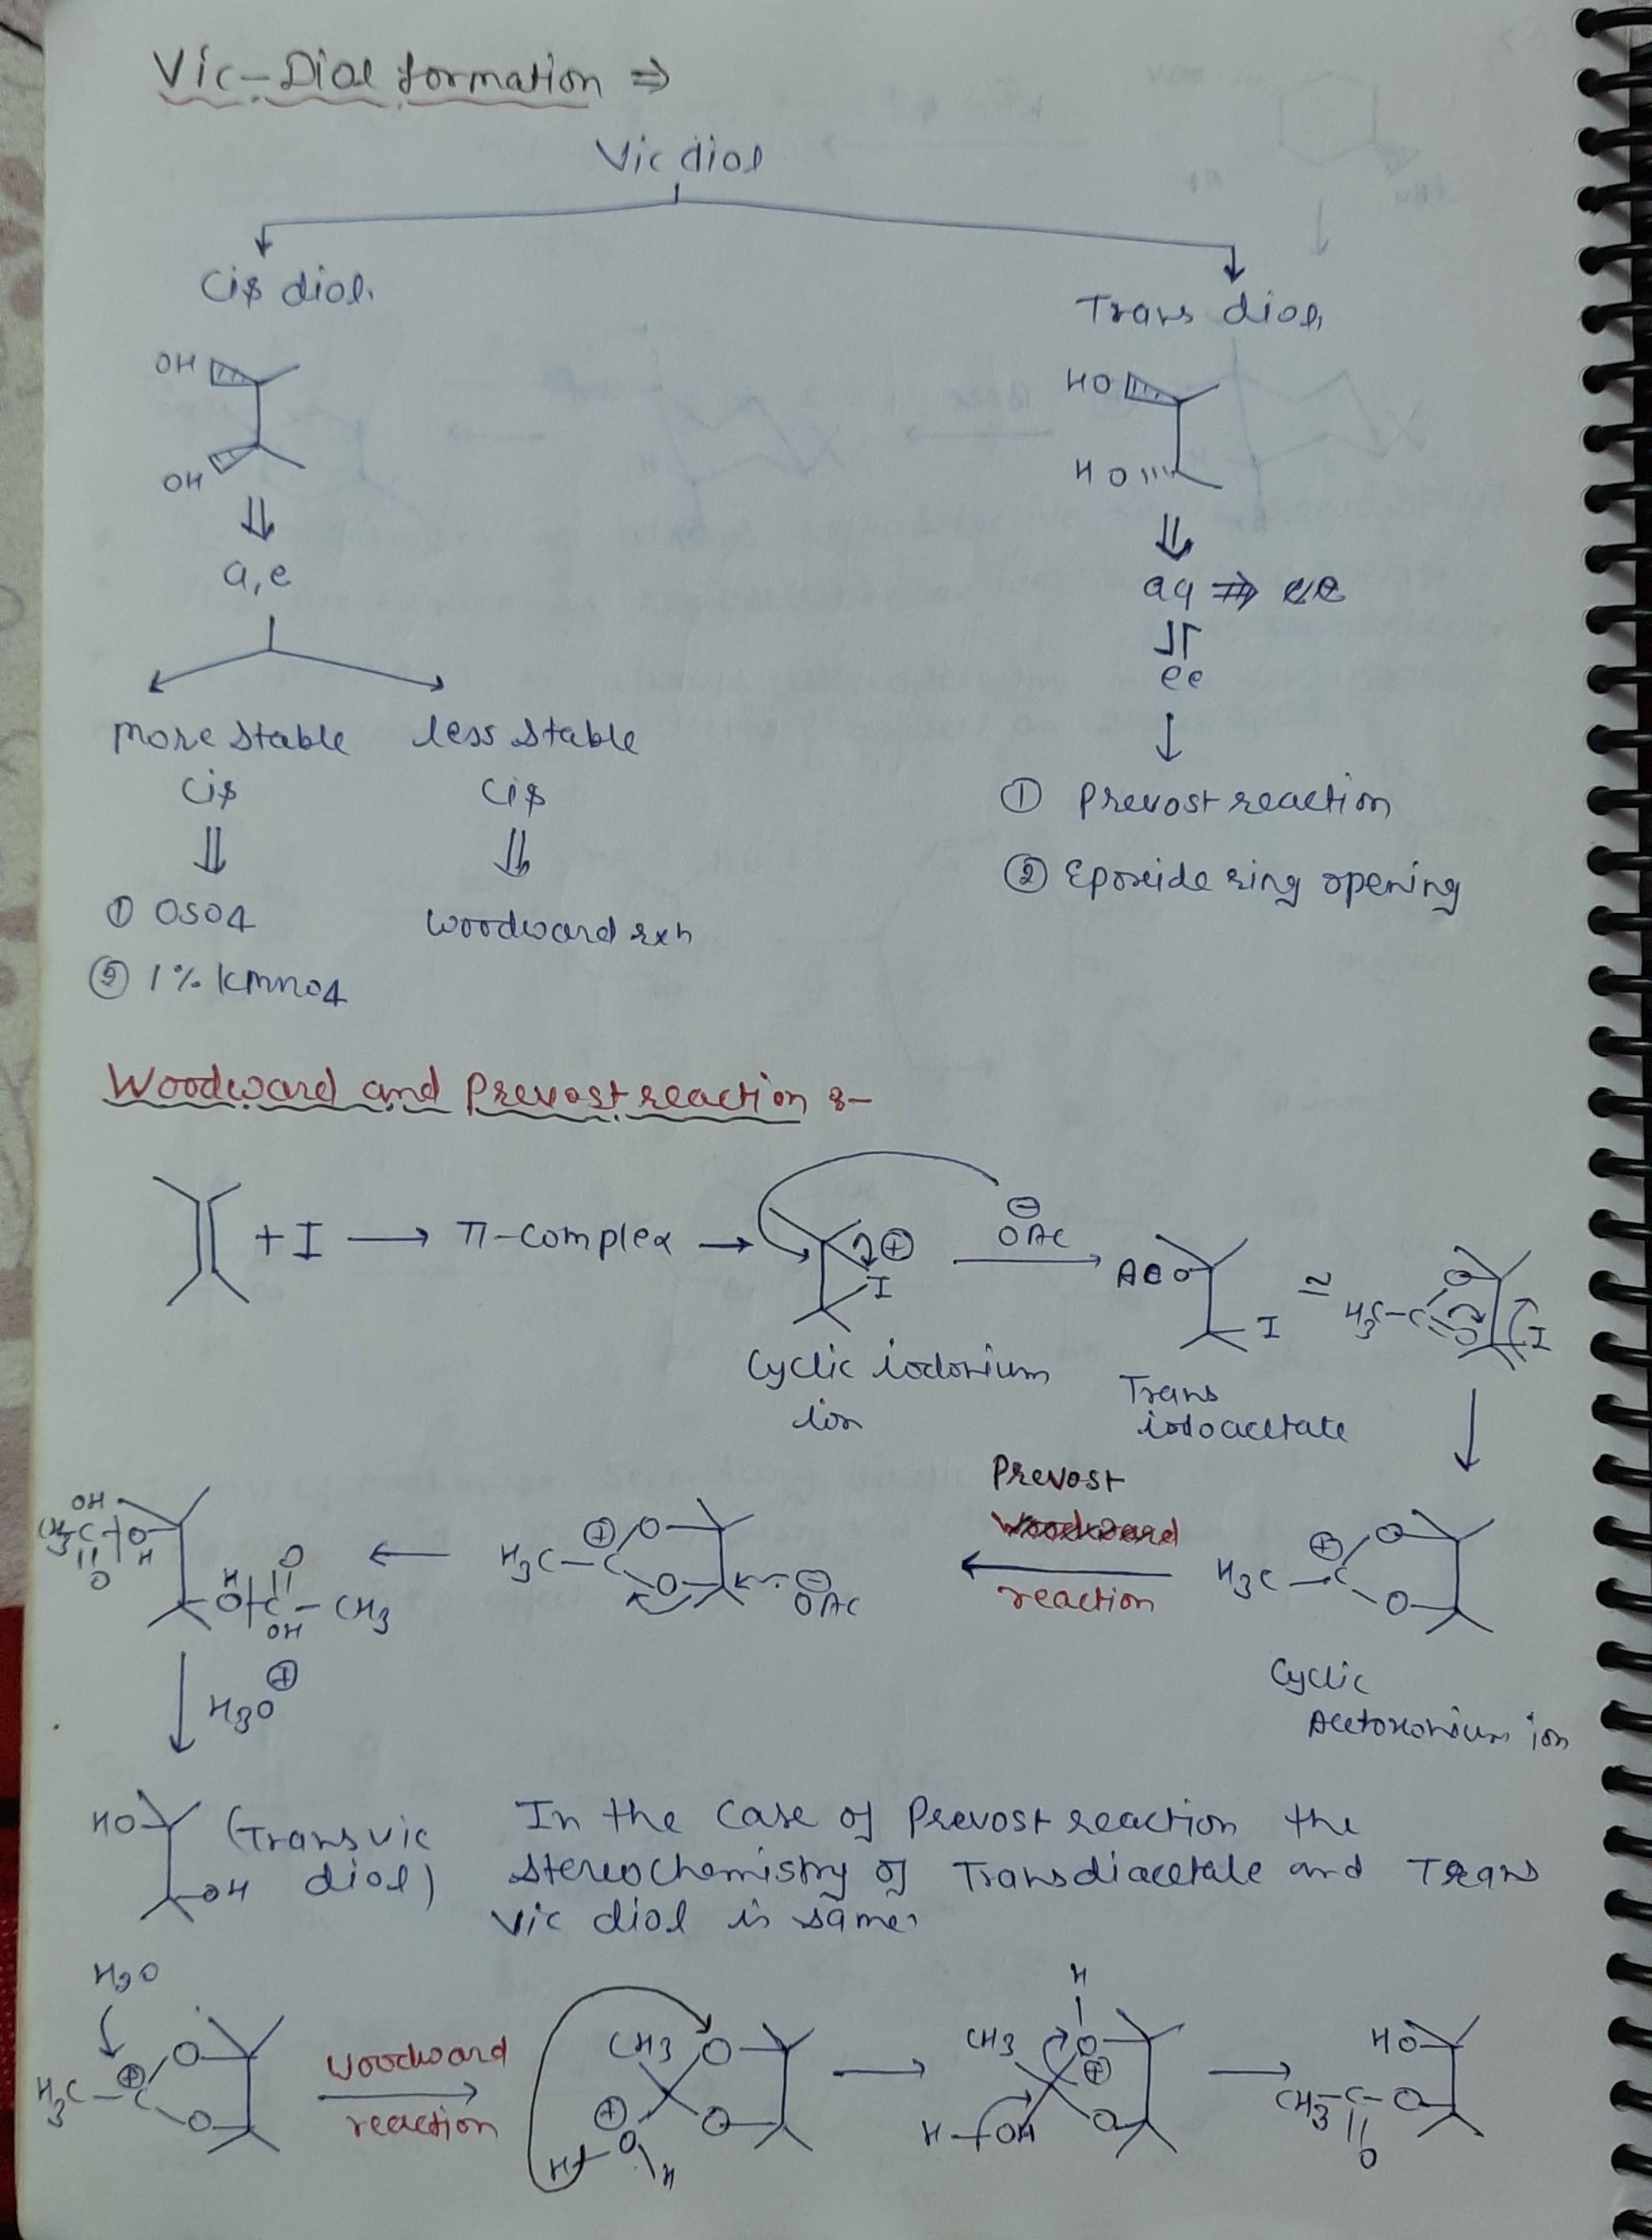 Vic-Diol formation ⇒
Vic diol
Cis diol.
Trans diol,
OH
OH
HO
HO
a,e
aa ⇌ ee
more stable less stable
cis cis
① OSO4
② 1% KMnO4
Woodward rxn
① Prevost reaction
② Epoxide ring opening
Woodward and Prevost reaction :-
+ I → π-complex →
⊕
I
Cyclic iodonium
ion
⊖
OAc
AcO
I
Trans
iodoacetate
≃
H3C-C
O
O
I
H3C-C
⊕
O
O
Cyclic
Acetoxonium ion
Prevost
reaction
H3C-C
⊕
O
O
⊖
OAc
OH
CH3-C-O
O
H
H
O-C-CH3
O
OH
H3O⊕
HO
OH
(Trans vic
diol)
In the case of Prevost reaction the
stereochemistry of Transdiacetate and Trans
vic diol is same.
H2O
H3C-C
⊕
O
O
Woodward
reaction
CH3
O
O
⊕
H O
H
H
CH3
O
⊕
H-OH
O
HO
CH3-C-O
O